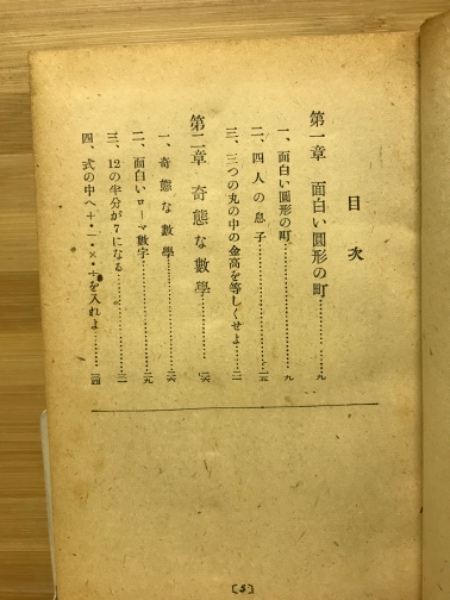 目次
第一章 面白い圓形の町……………九
一、面白い圓形の町……………九
二、四人の息子……………一五
三、三つの丸の中の金高を等しくせよ……………二一
第二章 奇態な數學……………二六
一、奇態な數學……………二六
二、面白いローマ數字……………二九
三、12の半分が7になる……………三一
四、式の中へ+・−・×・÷を入れよ……………三四
〔5〕